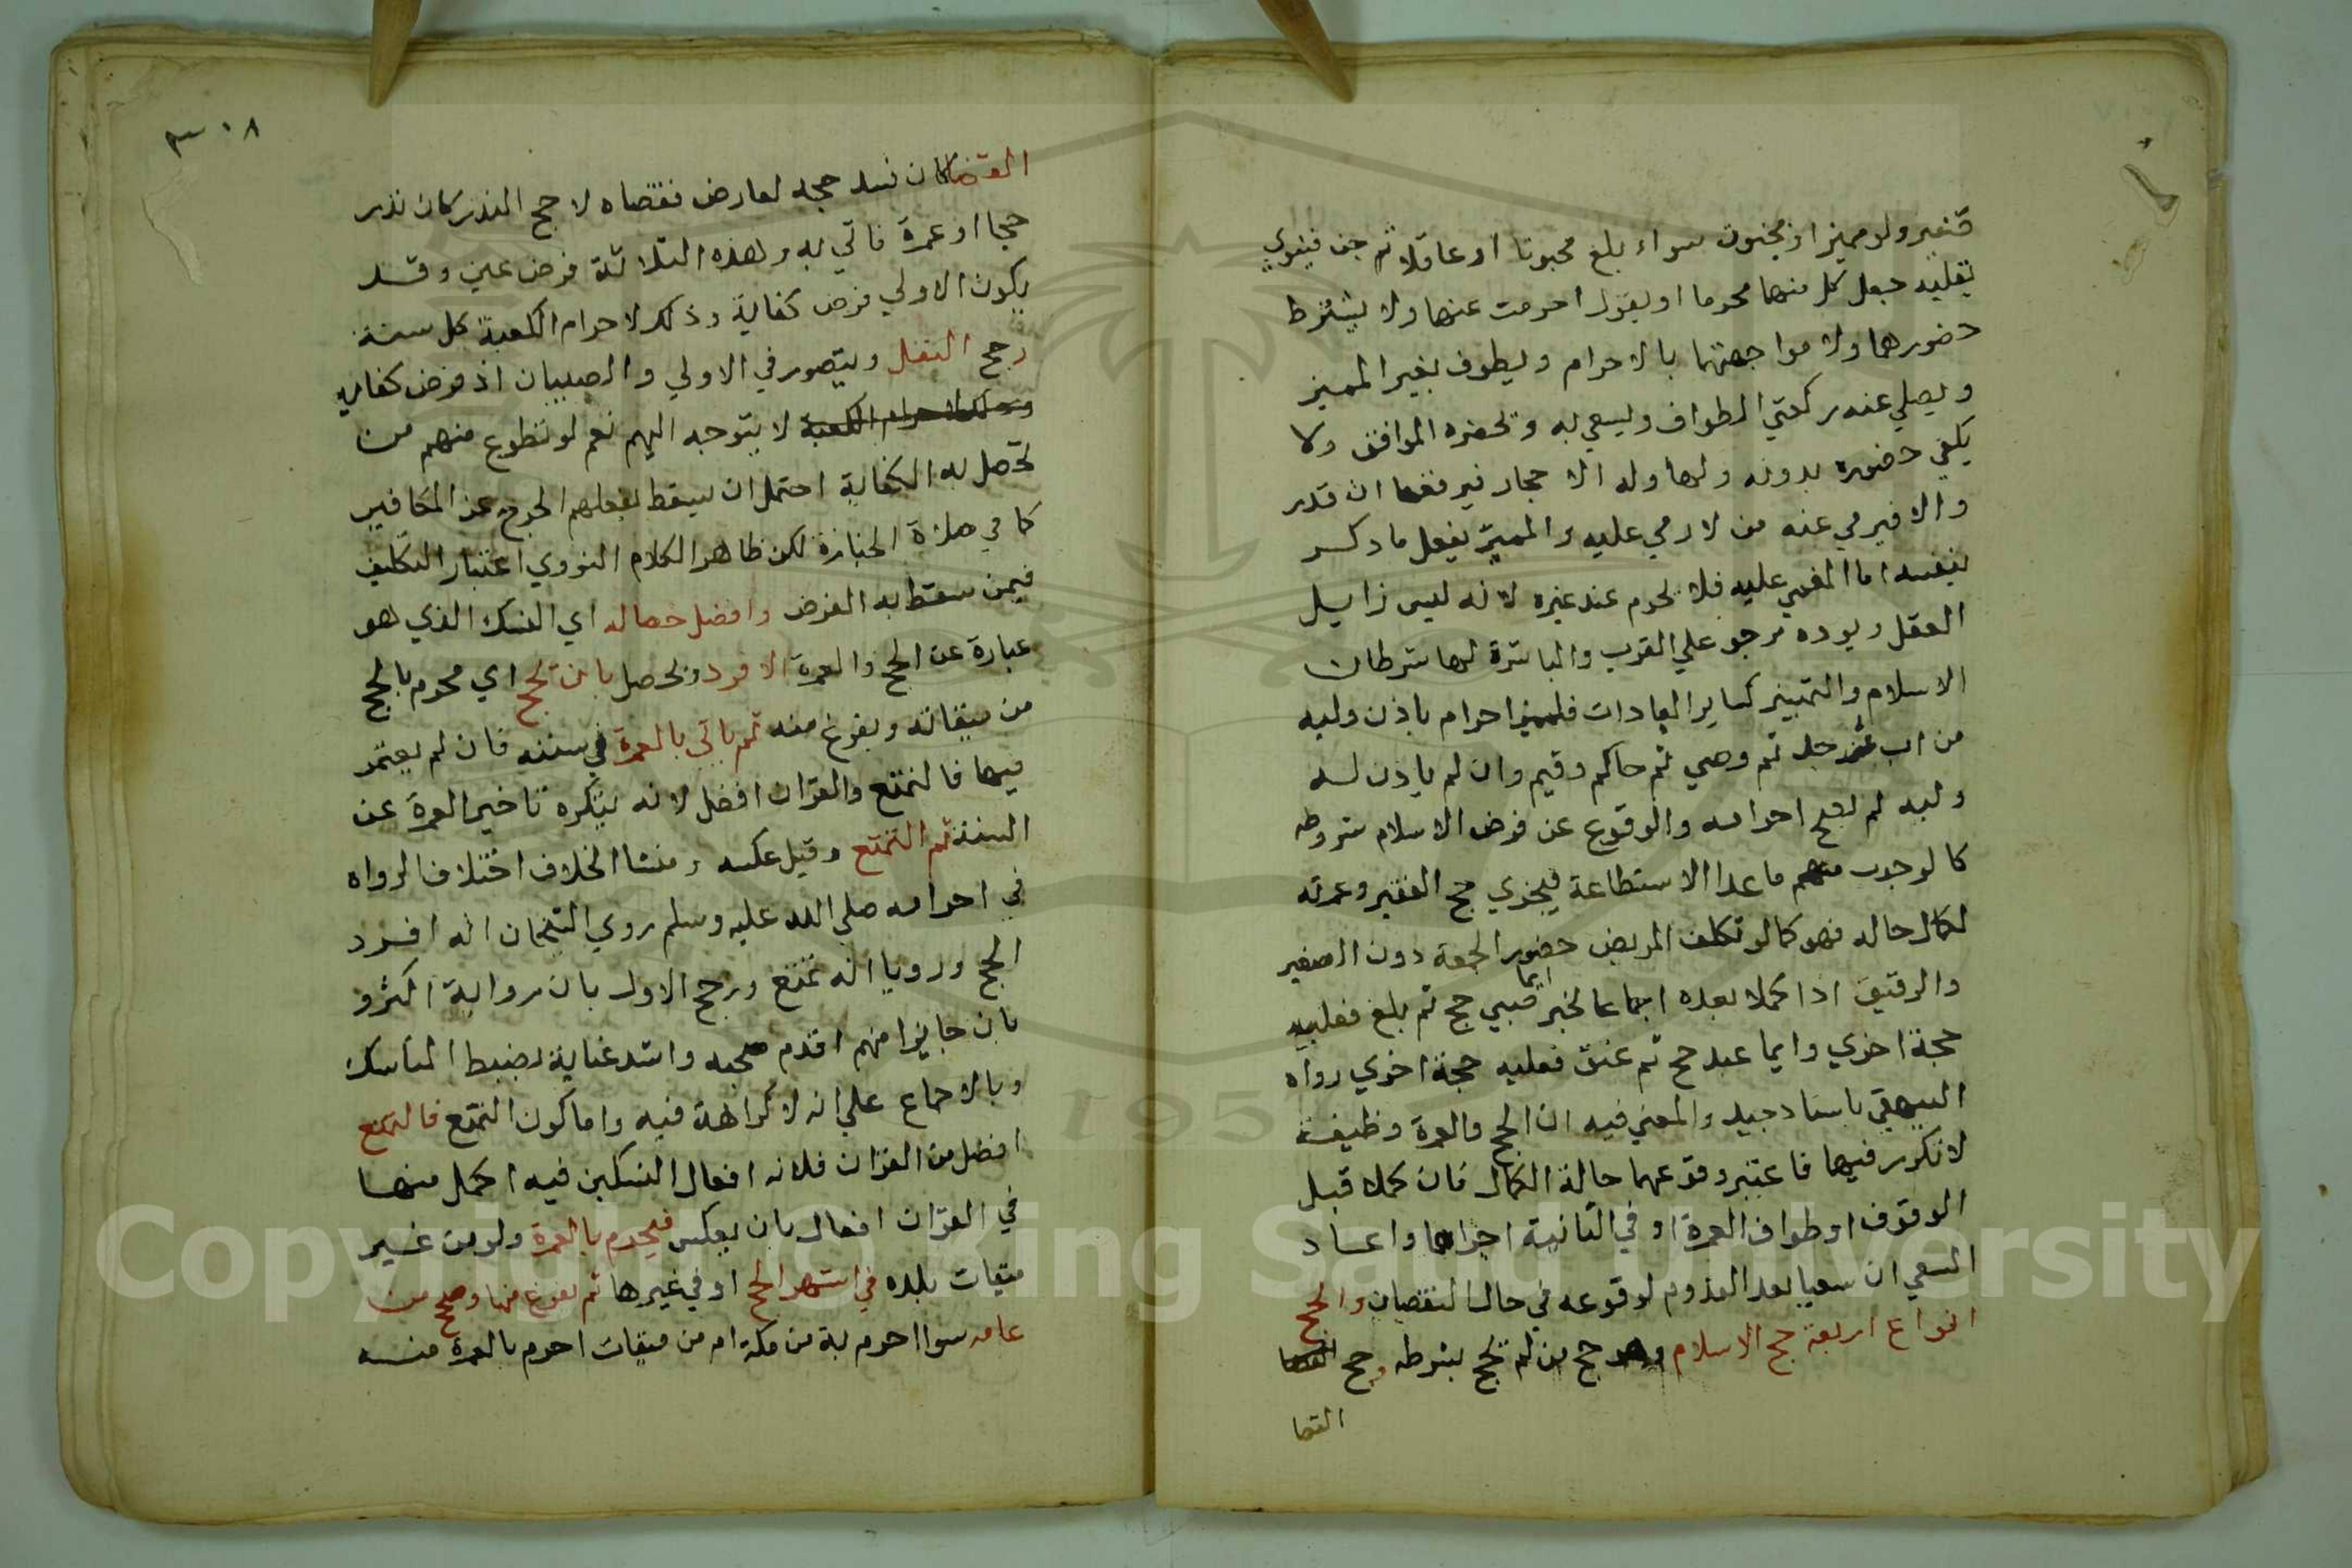 ولو مميزا او مجنون سواء بلغ مجنونا او عاقلا ثم جن فينوي
بقلبه جعل كل منهما محرما او يقول احرمت عنهما ولا يشترط
حضورهما ولا مواجهتهما بالاحرام ويطوف بغير المميز
ويصلي عنه ركعتي الطواف ويسعي به ويحضره المواقف ولا
يكفي حضوره بدونه ويناوله الاحجار فيرميها ان قدر
والا فيرمي عنه من لا رمي عليه والمميز يفعل ما ذكر
بنفسه اما المغمي عليه فلا يحرم عنه غيره لانه ليس زايل
العقل وبروه مرجو علي القرب والمباشرة لها شرطان
الاسلام والتمييز كساير العبادات فلمميز احرام باذن وليه
من اب ثم جد ثم وصي ثم حاكم وقيم وان لم ياذن له
وليه لم يصح احرامه والوقوع عن فرض الاسلام شروطه
كالوجوب ما عدا الاستطاعة فيجزي حج الفقير وعمرته
لكمال حاله فهو كما لو تكلف المريض حضور الجمعة دون الصغير
والرقيق اذا كملا بعده اجماعا لخبر ايما صبي حج ثم بلغ فعليه
حجة اخري وايما عبد حج ثم عتق فعليه حجة اخري رواه
البيهقي باسناد جيد والمعني فيه ان الحج والعمرة وظيفة
لا تكرر فيها فاعتبر وقوعهما حالة الكمال فان كملا قبل
الوقوف او طواف العمرة او في اثنائه اجزاهما واعاد
السعي ان سعيا بعد القدوم لوقوعه في حال النقصان والحج
انواع اربعة حج الاسلام وهو حج من لم يحج بشرطه وحج
القضا
٣٠٨
القضا كان فسد حجه لعارض فقضاه لا حج النذر كان نذر
حجا او عمرة فاتي به وهذه الثلاثة فرض عين وقد
يكون الاولي فرض كفاية وذلك لاحرام الكعبة كل سنة
وحج النفل ويتصور في الاولي والصبيان اذ فرض كفايه
وذلك لاحرام الكعبة لا يتوجه اليهم نعم لو تطوع منهم من
تحصل به الكفاية احتمل ان يسقط بفعلهم الحرج عن المكلفين
كما في صلاة الجنازة لكن ظاهر الكلام النووي اعتبار التكليف
فيمن سقط به الفرض وافضل خصاله اي النسك الذي هو
عبارة عن الحج والعمرة الافراد ويحصل بان يحج اي يحرم بالحج
من ميقاته ويفرغ منه ثم ياتي بالعمرة في سنته فان لم يعتمر
فيها فالتمتع والقران افضل لانه يكره تاخير العمرة عن
السنة ثم التمتع وقيل عكسه ومنشا الخلاف اختلاف الرواه
في احرامه صلي الله عليه وسلم روي الشيخان انه افرد
الحج ورويا انه تمتع ورجح الاول بان رواية اكثر و
بان جابرا منهم اقدم صحبه واشد عناية بضبط المناسك
وبالاجماع علي انه لا كراهة فيه واما كون التمتع فالتمتع
افضل من القران فلانه افعال النسكين فيه اكمل منها
في القران افعال بان يعكس فيحرم بالعمرة ولو من غير
ميقات بلده في اشهر الحج او في غيرها ثم يفرغ منها وحج من
عامه سوا احرم به من مكة ام من ميقات احرم بالعمرة منه